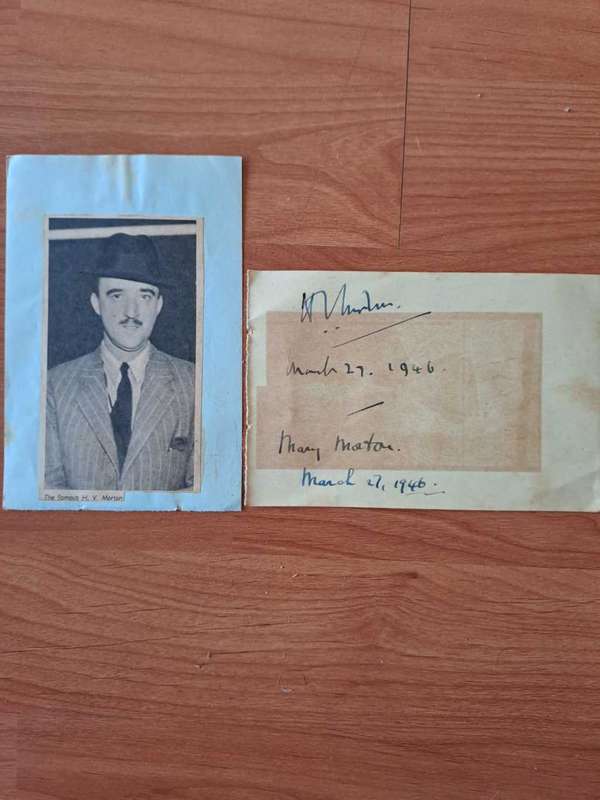 The famous H. V. Morton
H V Morton.
March 27. 1946.
Mary Morton.
March 27, 1946.